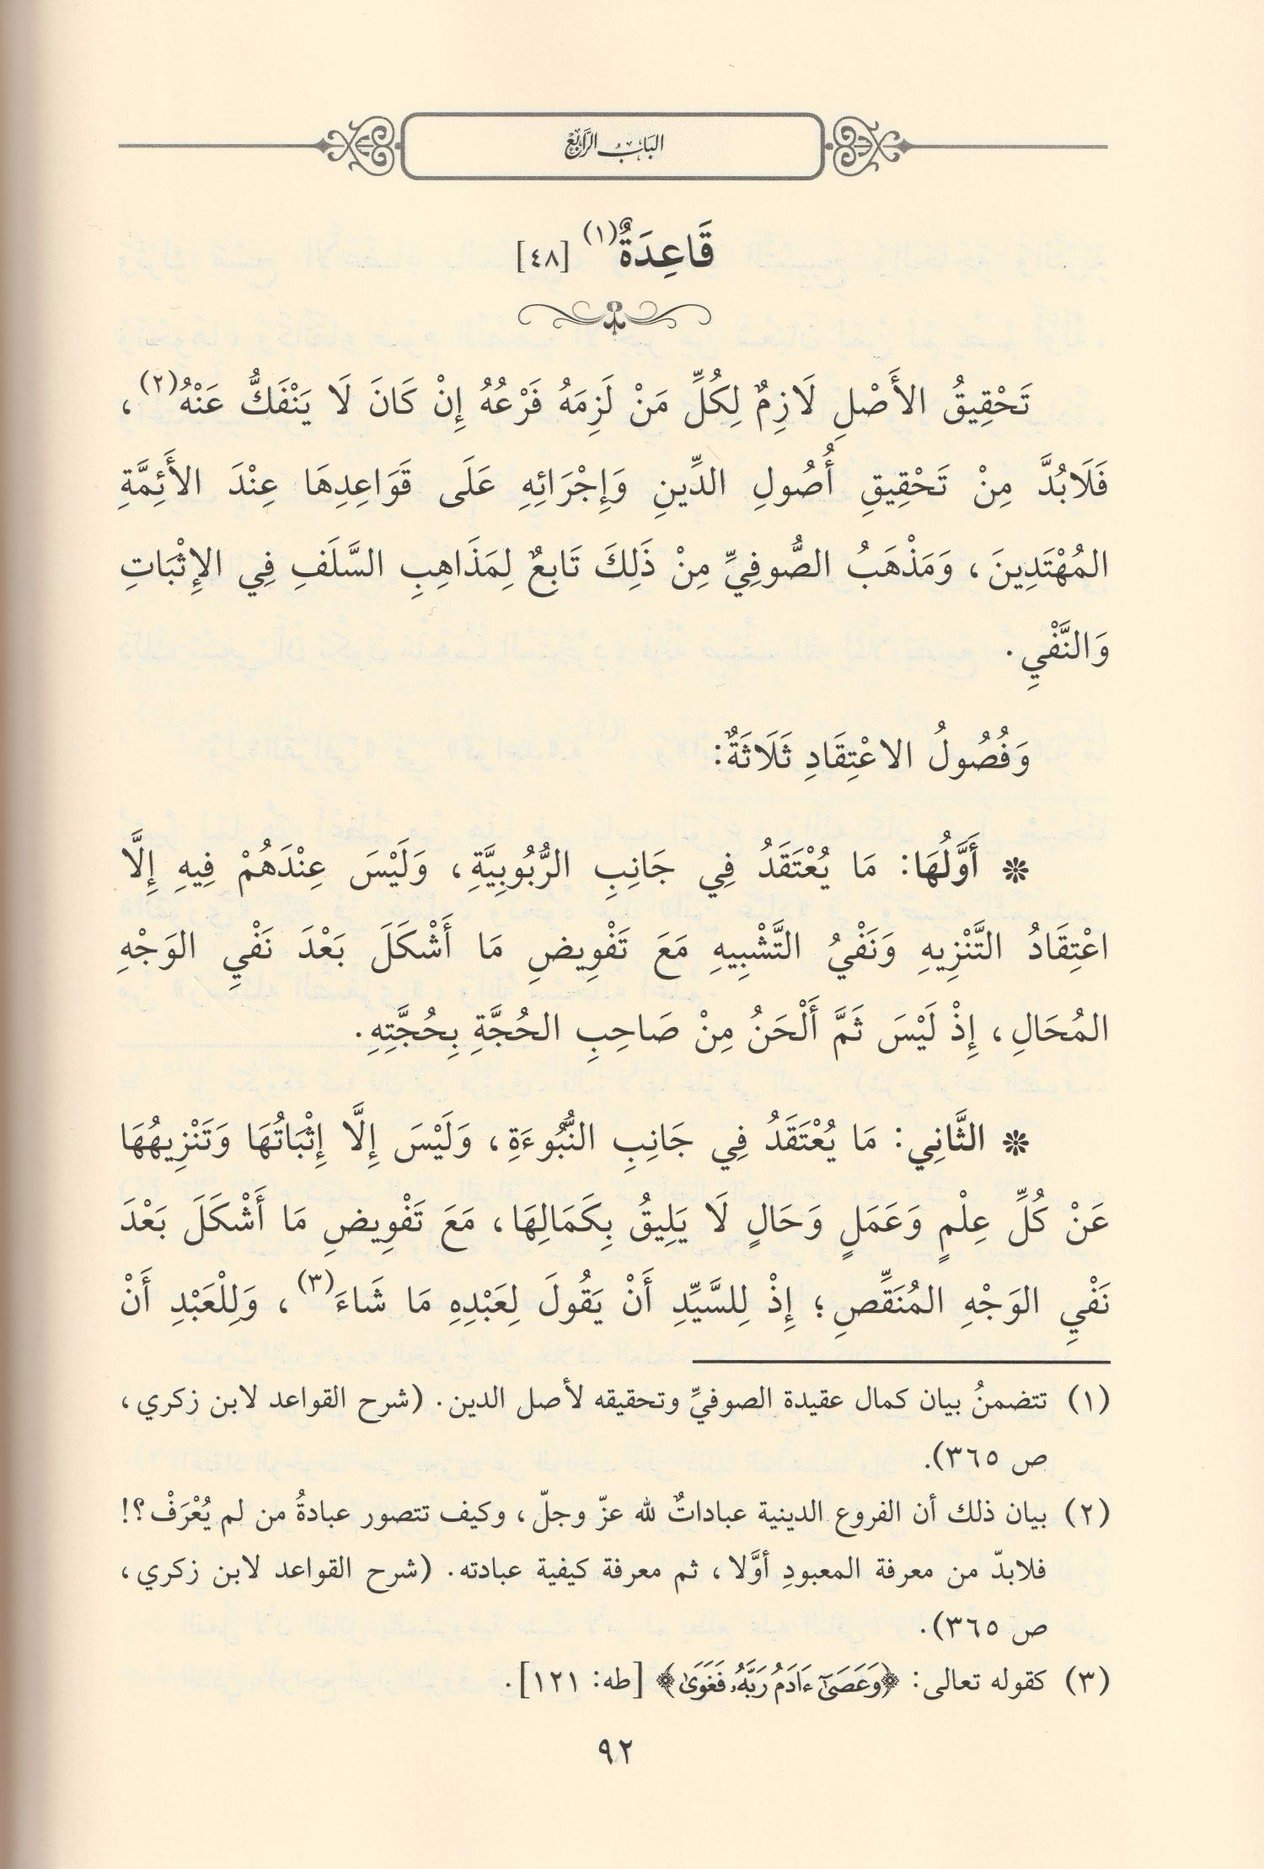 الباب الرابع
قَاعِدَةٌ(١) [٤٨]
تَحْقِيقُ الأَصْلِ لَازِمٌ لِكُلِّ مَنْ لَزِمَهُ فَرْعُهُ إِنْ كَانَ لَا يَنْفَكُّ عَنْهُ(٢)،
فَلَابُدَّ مِنْ تَحْقِيقِ أُصُولِ الدِّينِ وَإِجْرَائِهِ عَلَى قَوَاعِدِهَا عِنْدَ الأَئِمَّةِ
المُهْتَدِينَ، وَمَذْهَبُ الصُّوفِيِّ مِنْ ذَلِكَ تَابِعٌ لِمَذَاهِبِ السَّلَفِ فِي الإِثْبَاتِ
وَالنَّفْيِ.
وَفُصُولُ الاعْتِقَادِ ثَلَاثَةٌ:
❊ أَوَّلُهَا: مَا يُعْتَقَدُ فِي جَانِبِ الرُّبُوبِيَّةِ، وَلَيْسَ عِنْدَهُمْ فِيهِ إِلَّا
اعْتِقَادُ التَّنْزِيهِ وَنَفْيُ التَّشْبِيهِ مَعَ تَفْوِيضِ مَا أَشْكَلَ بَعْدَ نَفْيِ الوَجْهِ
المُحَالِ، إِذْ لَيْسَ ثَمَّ أَلْحَنُ مِنْ صَاحِبِ الحُجَّةِ بِحُجَّتِهِ.
❊ الثَّانِي: مَا يُعْتَقَدُ فِي جَانِبِ النُّبُوءَةِ، وَلَيْسَ إِلَّا إِثْبَاتُهَا وَتَنْزِيهُهَا
عَنْ كُلِّ عِلْمٍ وَعَمَلٍ وَحَالٍ لَا يَلِيقُ بِكَمَالِهَا، مَعَ تَفْوِيضِ مَا أَشْكَلَ بَعْدَ
نَفْيِ الوَجْهِ المُنَقِّصِ؛ إِذْ لِلسَّيِّدِ أَنْ يَقُولَ لِعَبْدِهِ مَا شَاءَ(٣)، وَلِلْعَبْدِ أَنْ
(١) تتضمنُ بيان كمال عقيدة الصوفيِّ وتحقيقه لأصل الدين. (شرح القواعد لابن زكري،
ص ٣٦٥).
(٢) بيان ذلك أن الفروع الدينية عباداتٌ لله عزّ وجلّ، وكيف تتصور عبادةُ من لم يُعْرَفْ؟!
فلابدّ من معرفة المعبودِ أوَّلا، ثم معرفة كيفية عبادته. (شرح القواعد لابن زكري،
ص ٣٦٥).
(٣) كقوله تعالى: ﴿وَعَصَىٰٓ ءَادَمُ رَبَّهُۥ فَغَوَىٰ﴾ [طه: ١٢١].
٩٢